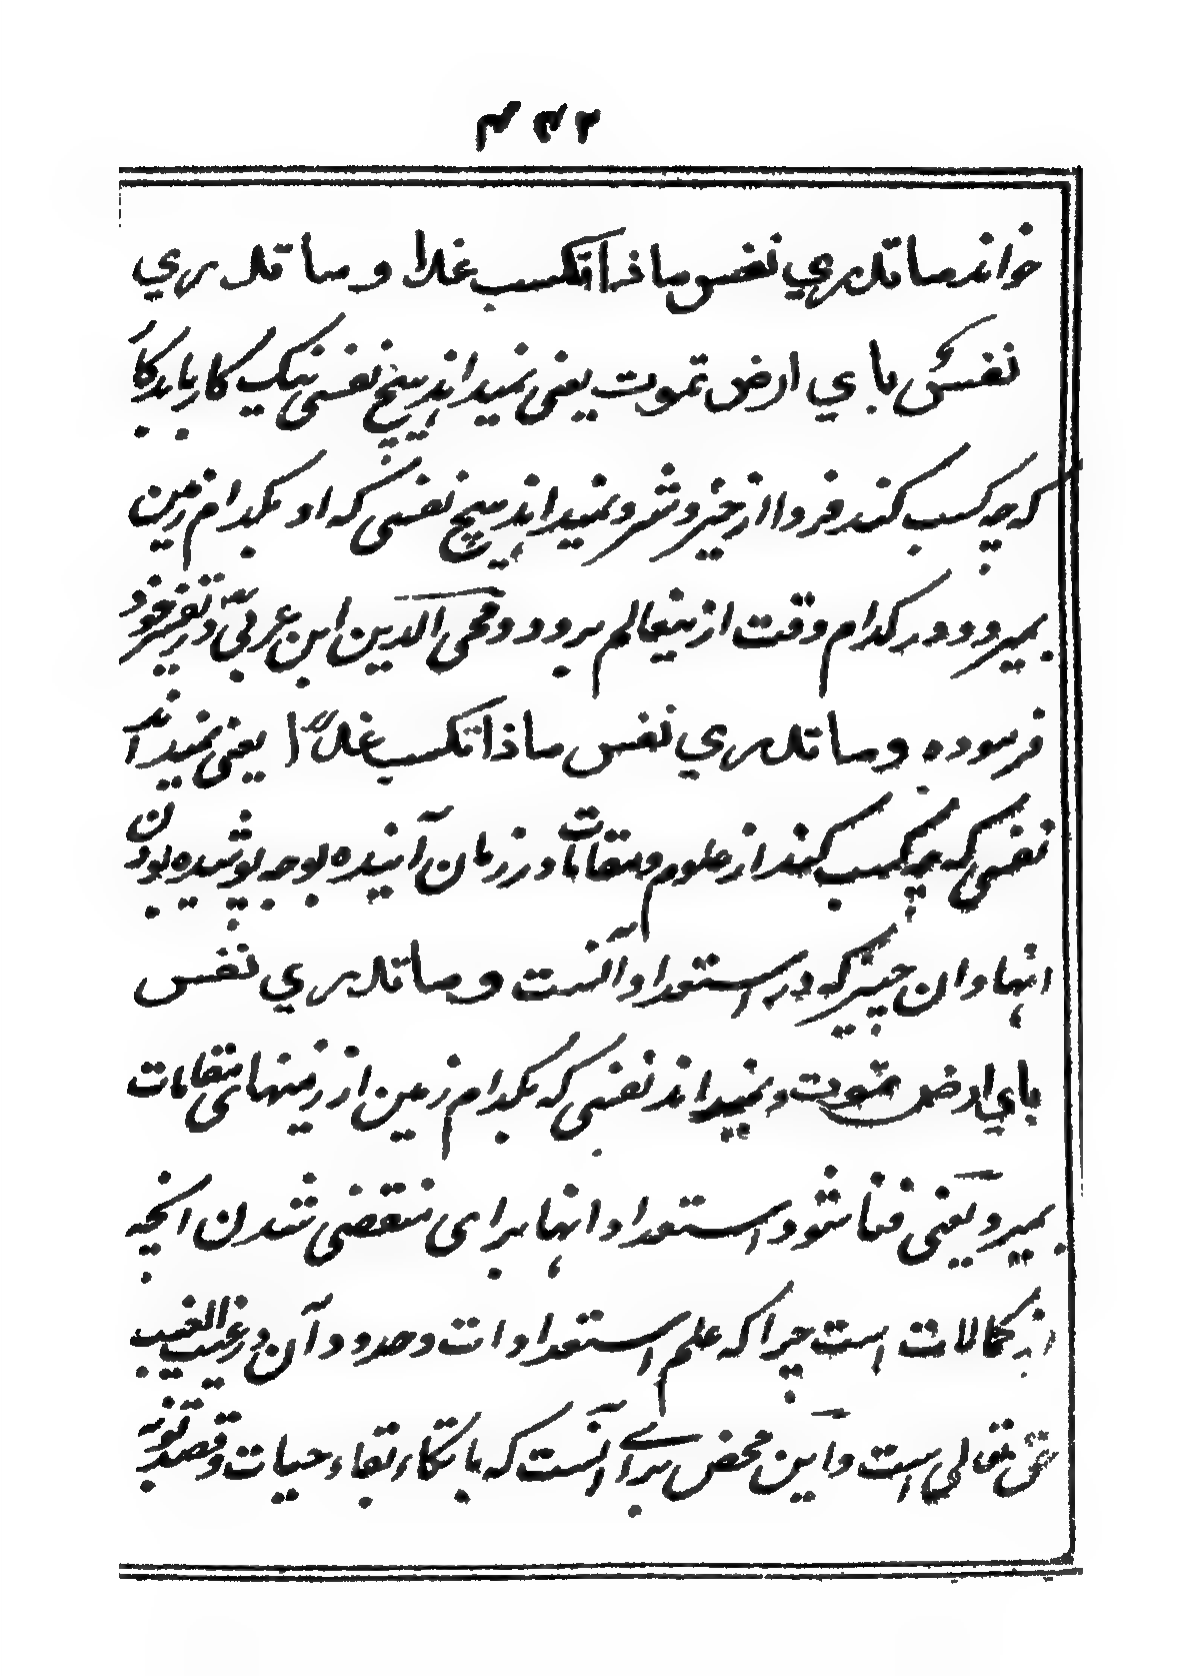 ۲۳۳
خواند ما تدري نفس ما ذا تكسب غدا وما تدري
نفس باي ارض تموت یعنی نمیداند هیچ نفسی نیک کار یا بدکار
که چه کسب کند فردا از خیر و شر و نمیداند هیچ نفسی که او بکدام زمین
بمیرد و در کدام وقت از ینعالم برود و محی الدین ابن عربی در تفسیر خود
فرموده وما تدري نفس ما ذا تكسب غدا یعنی نمیداند
نفسی که چه کسب کند از علوم و مقامات در زمان آینده بوجه پوشیده بودن
انها و ان چیز که در استعداد آنست وما تدري نفس
باي ارض تموت و نمیداند نفسی که بکدام زمین از زمینهای مقامات
بمیرد یعنی فنا شود استعداد انها برای منقضی شدن انچه
از کمالات است چرا که علم استعدادات و حدود آن در غیب الغیب
حق تعالی است و این محض برای آنست که باتکاء بقاء حیات و قصد توبه